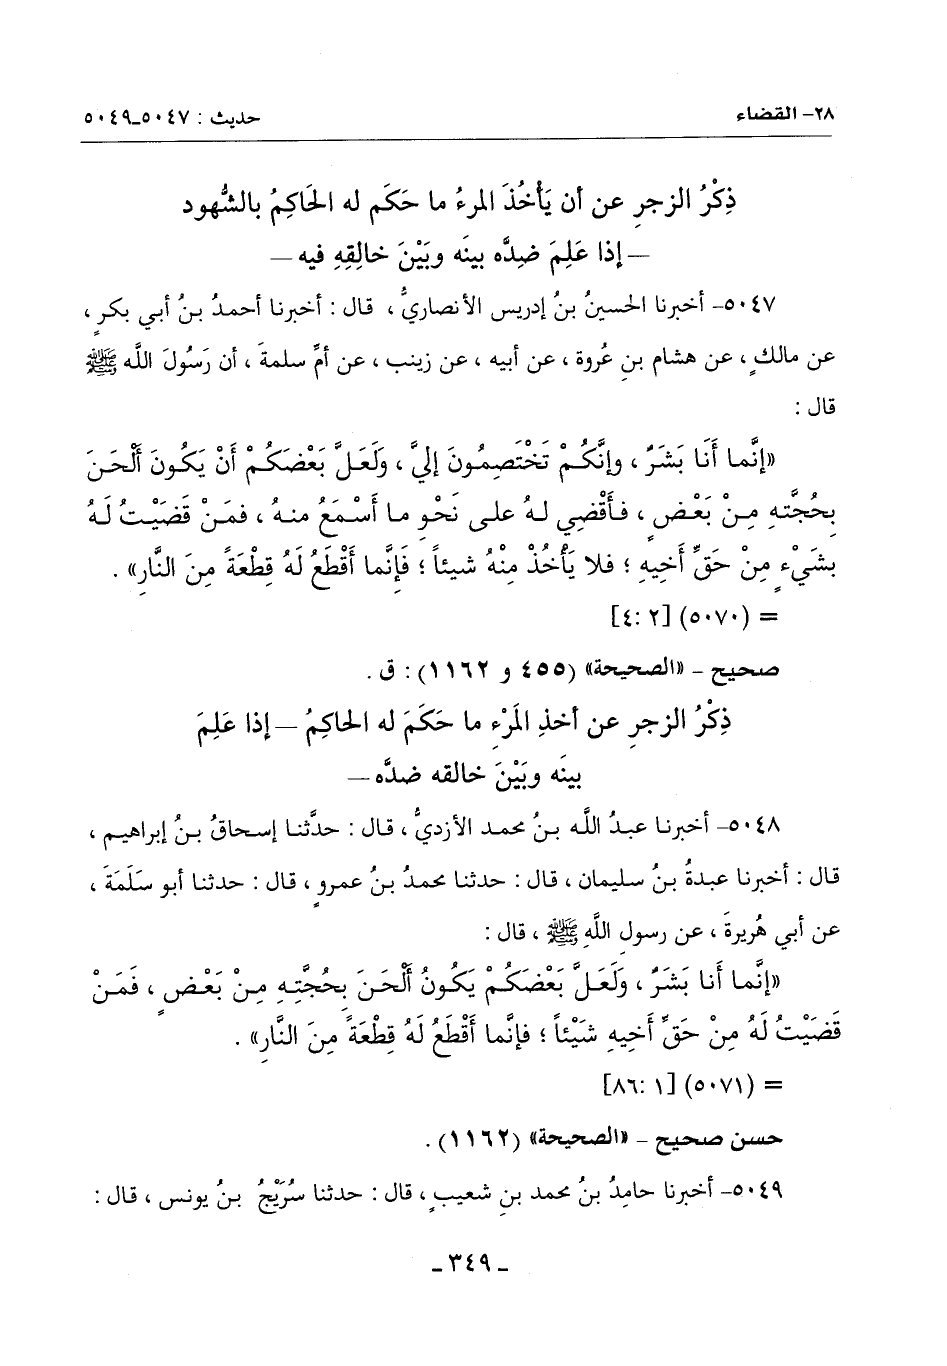 ٢٨- القضاء
حديث : ٥٠٤٧ـ٥٠٤٩
ذِكْرُ الزجرِ عن أن يَأْخُذَ المرءُ ما حَكَم له الحَاكِمُ بالشُّهود
— إذا عَلِمَ ضِدَّه بينَه وبَيْنَ خالِقِهِ فيه —
٥٠٤٧- أخبرنا الحسينُ بنُ إدريس الأنصاريُّ ، قال : أخبرنا أحمدُ بنُ أبي بكرٍ ،
عن مالكٍ ، عن هشام بنِ عُروة ، عن أبيه ، عن زينب ، عن أمِّ سلمةَ ، أن رَسُولَ اللَّه ﷺ
قال :
«إنَّما أَنَا بَشَرٌ ، وإنَّكُمْ تَخْتَصِمُونَ إليَّ ، ولَعَلَّ بَعْضَكُمْ أَنْ يَكُونَ أَلْحَنَ
بِحُجَّتِهِ مِنْ بَعْضٍ ، فَأَقْضِي لهُ على نَحْوِ ما أَسْمَعُ منهُ ، فمَنْ قَضَيْتُ لَهُ
بشَيْءٍ مِنْ حَقِّ أَخِيهِ ؛ فلا يَأْخُذْ مِنْهُ شيئاً ؛ فَإِنَّما أَقْطَعُ لَهُ قِطْعَةً مِنَ النَّارِ» .
= (٥٠٧٠) [٢ :٤]
صحيح – «الصحيحة» (٤٥٥ و ١١٦٢) : ق .
ذِكْرُ الزجرِ عن أخذِ المَرْءِ ما حَكَمَ له الحاكِمُ — إذا عَلِمَ
بينَه وبَيْنَ خالقه ضدَّه —
٥٠٤٨- أخبرنا عبدُ اللَّه بنُ محمد الأزديُّ ، قال : حدَّثنا إسحاقُ بنُ إبراهيم ،
قال : أخبرنا عبدةُ بنُ سليمان ، قال : حدثنا محمدُ بنُ عمرٍو ، قال : حدثنا أبو سَلَمَةَ ،
عن أبي هُريرةَ ، عن رسولِ اللَّهِ ﷺ ، قال :
«إنَّما أنا بَشَرٌ ، ولَعَلَّ بَعْضَكُمْ يَكُونُ أَلْحَنَ بِحُجَّتِهِ مِنْ بَعْضٍ ، فَمَنْ
قَضَيْتُ لَهُ مِنْ حَقِّ أَخِيهِ شَيْئاً ؛ فإنَّما أَقْطَعُ لَهُ قِطْعَةً مِنَ النَّارِ» .
= (٥٠٧١) [١ :٨٦]
حسن صحيح – «الصحيحة» (١١٦٢) .
٥٠٤٩- أخبرنا حامِدُ بنُ محمد بنِ شعيبٍ ، قال : حدثنا سُرَيْجُ بنُ يونس ، قال :
ـ ٣٤٩ ـ